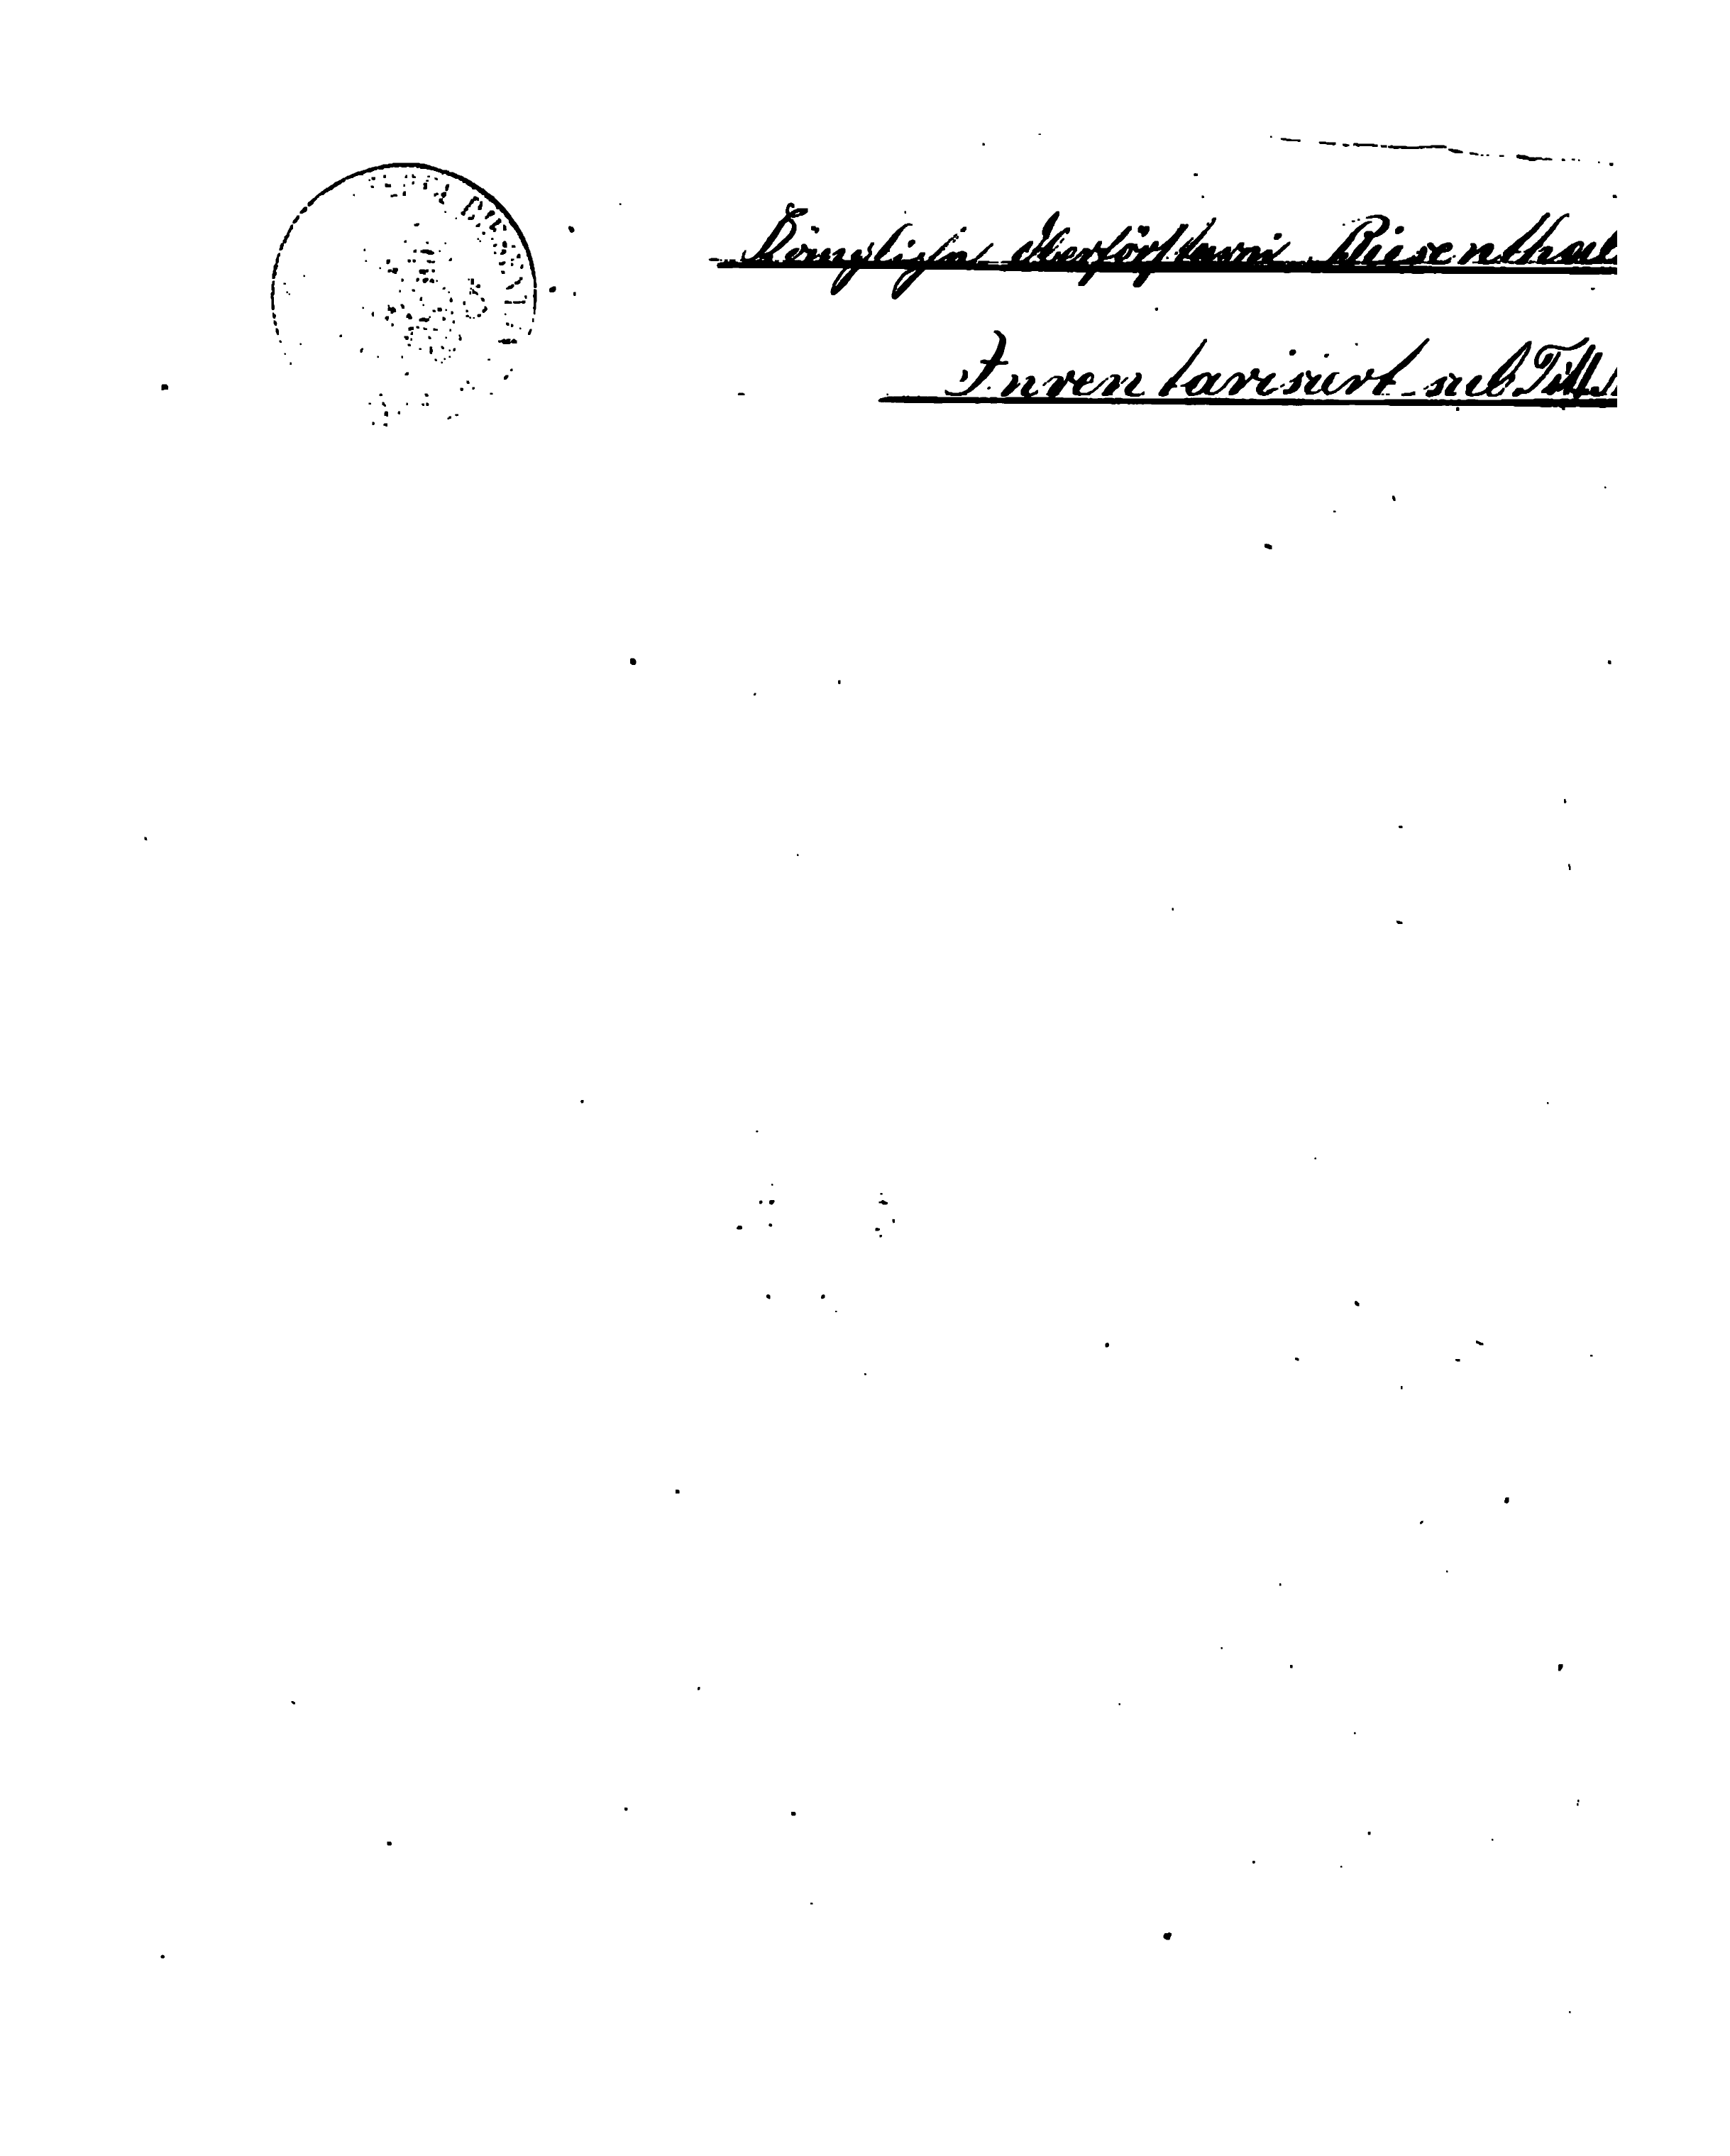 Königliche Oberförsterei Riesenthal
Inventarisirt sub Titl.